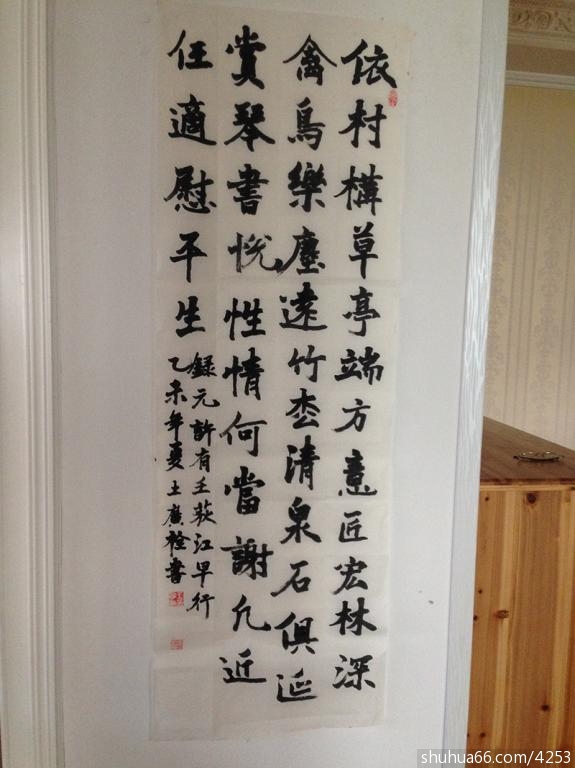 依村構草亭端方意匠宏林深
禽鳥樂塵遠竹枩清泉石俱延
賞琴書悅性情何當謝凡近
任適慰平生
録元許有壬荻江早行
乙未年夏廣栓書
shuhua66.com/4253